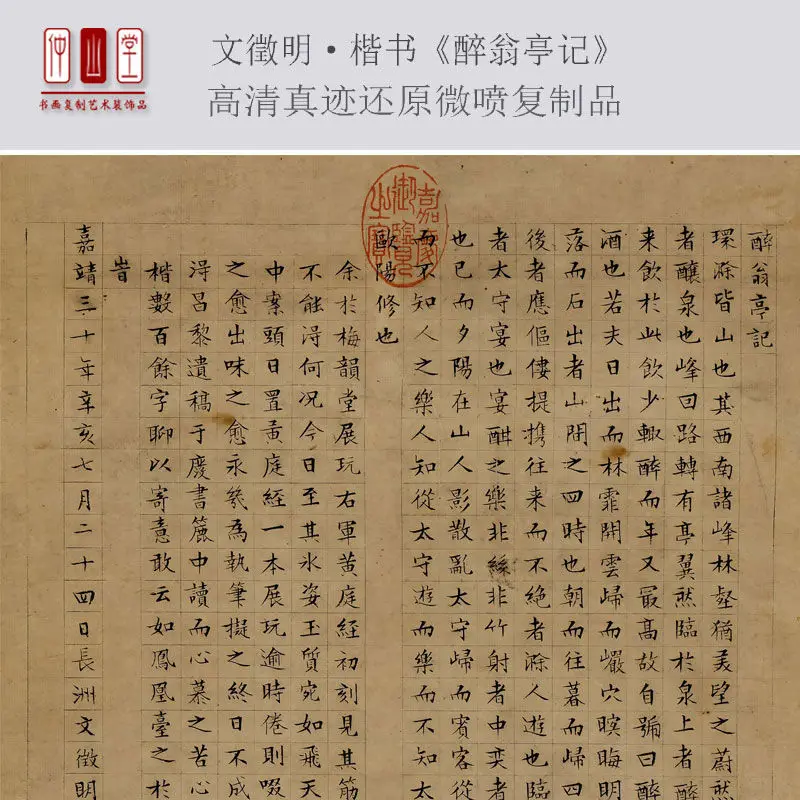 仲山堂
书画复制艺术装饰品
文徵明·楷书《醉翁亭记》
高清真迹还原微喷复制品
嘉慶御覽之寶
醉翁亭記
環滁皆山也其西南諸峰林壑猶美望之蔚然
者釀泉也峰回路轉有亭翼然臨於泉上者醉
来飲於此飲少輙醉而年又最高故自號曰醉
酒也若夫日出而林霏開雲歸而巖穴暝晦明
落而石出者山間之四時也朝而往暮而歸四
後者應傴僂提携往来而不絶者滁人遊也臨
者太守宴也宴酣之樂非絲非竹射者中奕者
也已而夕陽在山人影散亂太守歸而賓客從
而不知人之樂人知從太守遊而樂而不知太
歐陽修也
余於梅韻堂展玩右軍黄庭經初刻見其筋
不能淂何况今日至其氷姿玉質宛如飛天
中案頭日置黄庭經一本展玩逾時倦則啜
之愈出味之愈永幾為執筆擬之終日不成
淂昌黎遺稿于廢書簏中讀而心慕之苦心
楷數百餘字聊以寄意敢云如鳳凰臺之於
旹
嘉靖三十年辛亥七月二十四日長洲文徵明